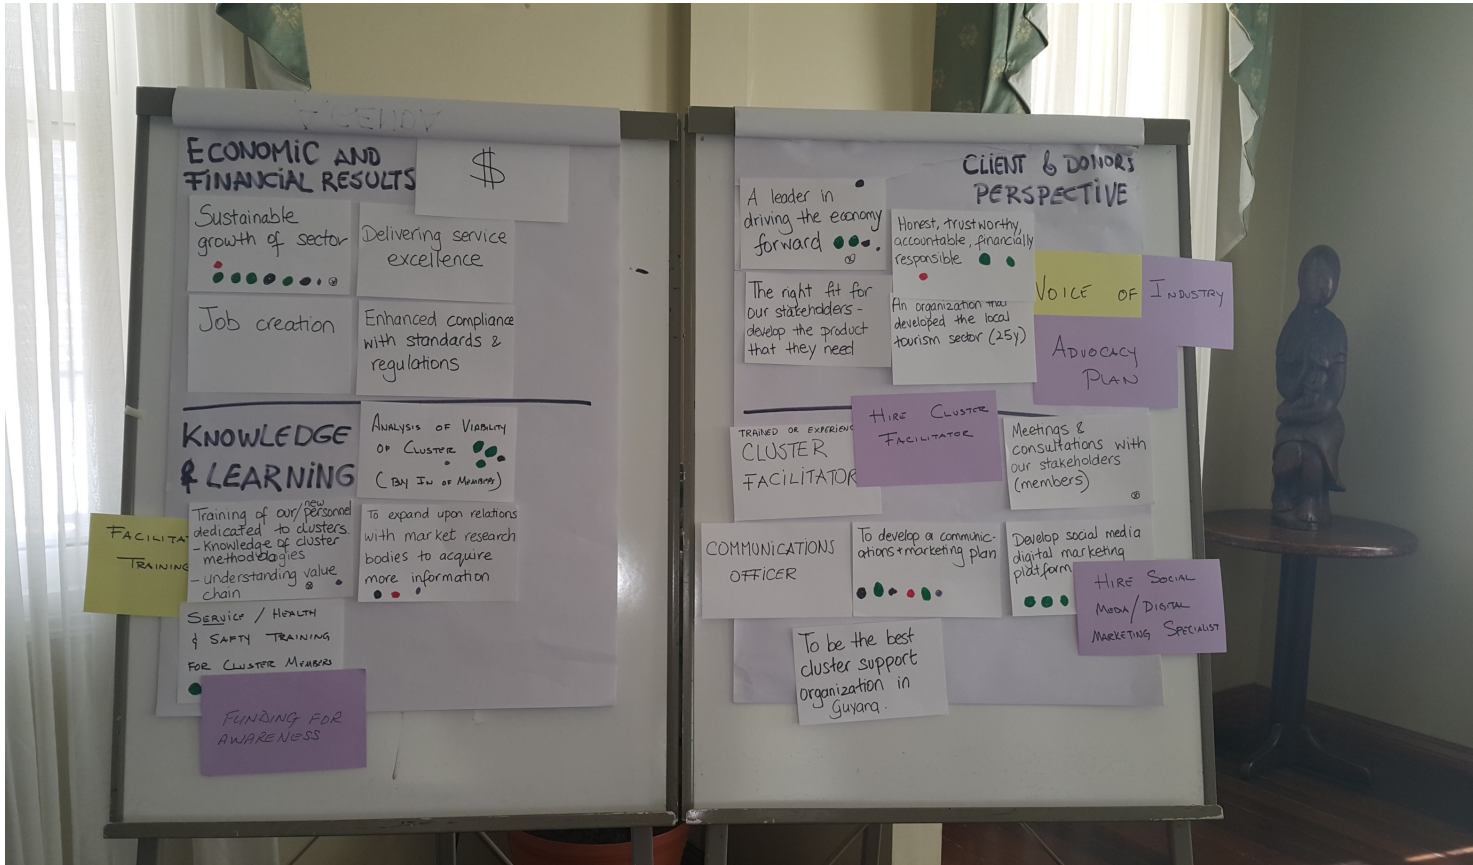 AGENDA
ECONOMIC AND
FINANCIAL RESULTS
$
Sustainable
growth of sector
Delivering service
excellence
Job creation
Enhanced compliance
with standards &
regulations
KNOWLEDGE
& LEARNING
ANALYSIS OF VIABILITY
OF CLUSTER
(BAY IN OF MEMBERS)
Training of our/new personnel
dedicated to clusters.
- Knowledge of cluster
methodologies
- understanding value
chain
To expand upon relations
with market research
bodies to acquire
more information
FACILITAT
TRAINING
SERVICE / HEALTH
& SAFTY TRAINING
FOR CLUSTER MEMBERS
FUNDING FOR
AWARENESS
CLIENT & DONORS
PERSPECTIVE
A leader in
driving the economy
forward
Honest, trustworthy,
accountable, financially
responsible
The right fit for
our stakeholders -
develop the product
that they need
An organization that
developed the local
tourism sector (25y)
VOICE OF INDUSTRY
ADVOCACY
PLAN
TRAINED OR EXPERIENC
CLUSTER
FACILITATOR
HIRE CLUSTER
FACILITATOR
Meetings &
consultations with
our stakeholders
(members)
COMMUNICATIONS
OFFICER
To develop a communic-
ations + marketing plan
Develop social media
digital marketing
platform
HIRE SOCIAL
MEDIA/DIGITAL
MARKETING SPECIALIST
To be the best
cluster support
organization in
Guyana.